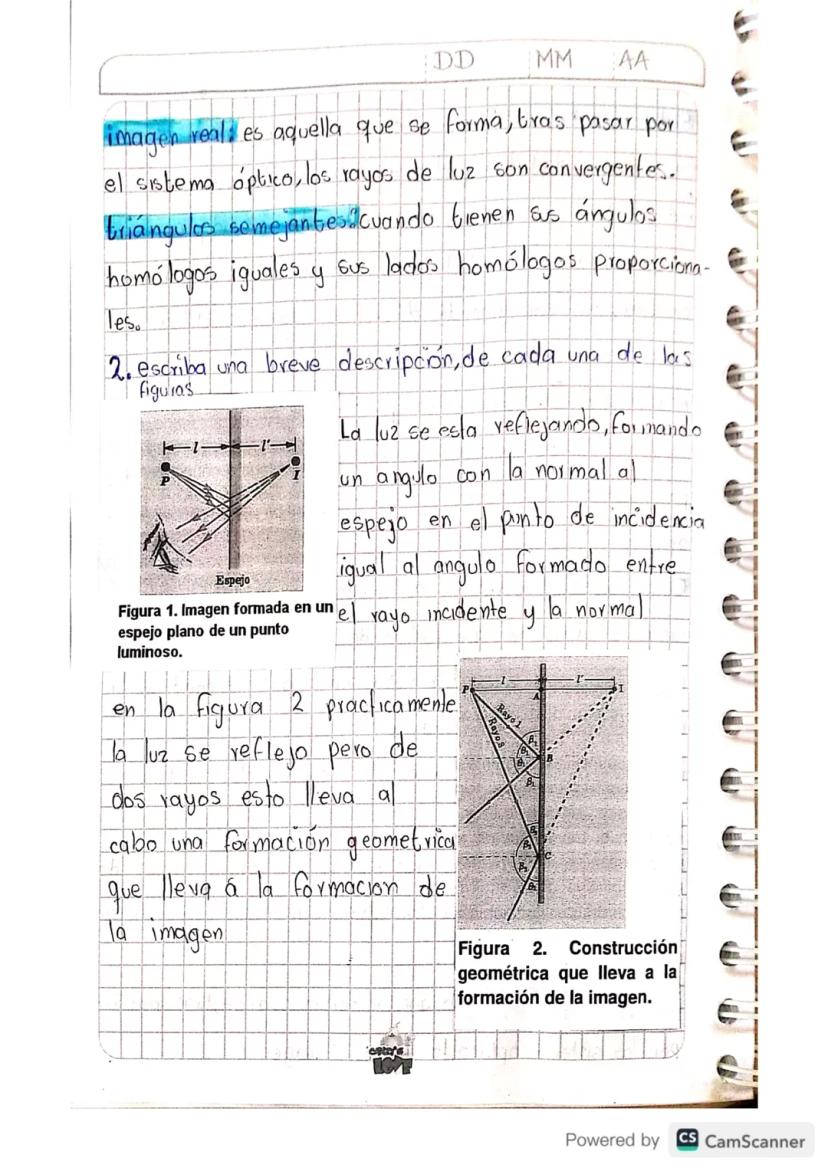 DD MM AA
imagen real: es aquella que se forma, tras pasar por
el sistema óptico, los rayos de luz son convergentes.
triángulos semejantes: cuando tienen sus ángulos
homólogos iguales y sus lados homólogos proporciona-
les.
2. escriba una breve descripción, de cada una de las
figuras
l l'
P I
Espejo
Figura 1. Imagen formada en un
espejo plano de un punto
luminoso.
La luz se esta reflejando, formando
un angulo con la normal al
espejo en el punto de incidencia
igual al angulo formado entre
el rayo incidente y la normal
en la figura 2 practicamente
la luz se reflejo pero de
dos rayos esto lleva al
cabo una formación geometrica
que lleva a la formacion de
la imagen
l l'
P A I
Rayo 1
Rayo 2
B
C
Figura 2. Construcción
geométrica que lleva a la
formación de la imagen.
LOVE
Powered by CS CamScanner